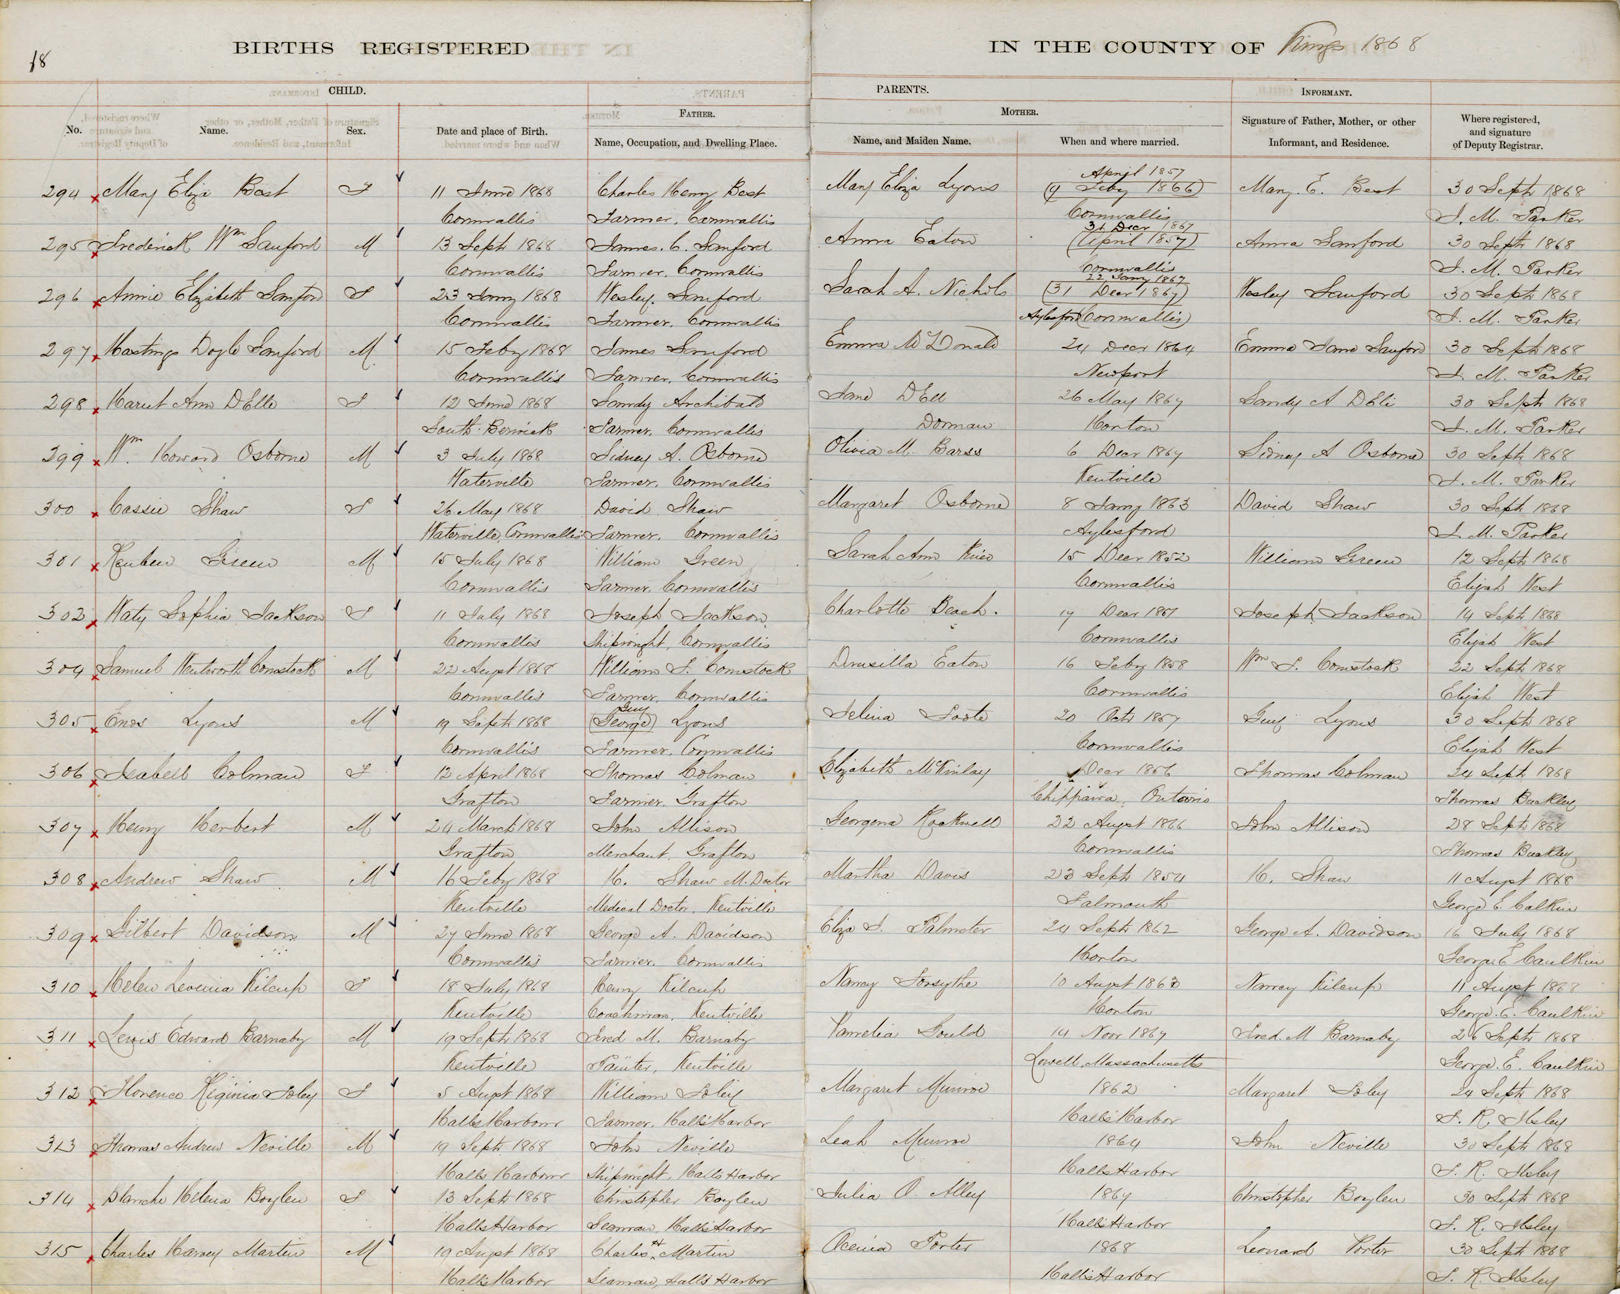 18
BIRTHS REGISTERED
IN THE COUNTY OF Kings 1868
CHILD.
PARENTS.
INFORMANT.
No.
Name.
Sex.
Date and place of Birth.
FATHER.
Name, Occupation, and Dwelling Place.
MOTHER.
Name, and Maiden Name.
When and where married.
Signature of Father, Mother, or other
Informant, and Residence.
Where registered,
and signature
of Deputy Registrar.
April 1857
294 Mary Eliza Best F 11 June 1868 Charles Henry Best Mary Eliza Lyons (9 Feby 1866) Mary E. Best 30 Sept 1868
Cornwallis Farmer, Cornwallis Cornwallis J. M. Parker
31 Decr 1867
295 Frederick Wm Sanford M 13 Sept 1868 James. C. Sanford Anna Eaton (April 1857) Anna Sanford 30 Sept 1868
Cornwallis Farmer, Cornwallis Cornwallis J. M. Parker
22 Jany 1867
296 Annie Elizabeth Sanford F 23 Jany 1868 Wesley Sanford Sarah A. Nichols (31 Decr 1867) Wesley Sanford 30 Sept 1868
Cornwallis Farmer, Cornwallis Aylesford (Cornwallis) J. M. Parker
297 Hastings Doyle Sanford M 15 Feby 1868 James Sanford Emma McDonald 24 Decr 1864 Emma Jane Sanford 30 Sept 1868
Cornwallis Farmer, Cornwallis Newport J. M. Parker
298 Hariet Ann DEll F 12 June 1868 Sandy Archibald Jane DEll 26 May 1867 Sandy A DEll 30 Sept 1868
South Berwick Farmer, Cornwallis Dorman Horton J. M. Parker
299 Wm. Howard Osborne M 3 July 1868 Sidney A. Osborne Olivia M. Barss 6 Decr 1867 Sidney A Osborne 30 Sept 1868
Waterville Farmer, Cornwallis Kentville J. M. Parker
300 Cassie Shaw F 26 May 1868 David Shaw Margaret Osborne 8 Jany 1863 David Shaw 30 Sept 1868
Waterville, Cornwallis Farmer, Cornwallis Aylesford J. M. Parker
301 Reuben Green M 15 July 1868 William Green Sarah Ann 15 Decr 1852 William Green 12 Sept 1868
Cornwallis Farmer, Cornwallis Cornwallis Elijah West
302 Sophia Jackson F 11 July 1868 Joseph Jackson Charlotte Beach. 17 Decr 1867 Joseph Jackson 14 Sept 1868
Cornwallis Shipwright, Cornwallis Cornwallis Elijah West
304 Samuel Wentworth Comstock M 22 Augst 1868 William F. Comstock Drusilla Eaton 16 Feby 1858 Wm F. Comstock 22 Sept 1868
Cornwallis Farmer, Cornwallis Cornwallis Elijah West
Guy
305 Enos Lyons M 19 Sept 1868 (George) Lyons Selina Foote 20 Octr 1867 Guy Lyons 30 Sept 1868
Cornwallis Farmer, Cornwallis Cornwallis Elijah West
306 Isabell Colman F 12 April 1868 Thomas Colman Elizabeth McKinlay Decr 1856 Thomas Colman 24 Sept 1868
Grafton Farmer, Grafton Chippawa, Ontario Thomas Buckley
307 Henry Herbert M 24 March 1868 John Allison Georgena Rockwell 22 Augst 1866 John Allison 28 Sept 1868
Grafton Merchant, Grafton Cornwallis Thomas Buckley
308 Andrew Shaw M 16 Feby 1868 H. Shaw M. Doctor Martha Davis 23 Sept 1854 H. Shaw 11 Augst 1868
Kentville Medical Doctor, Kentville Falmouth George E. Calkin
309 Gilbert Davidson M 27 June 1868 George A. Davidson Eliza J. Palmeter 24 Sept 1862 George A. Davidson 16 July 1868
Cornwallis Farmer, Cornwallis Horton George E Caulkin
310 Helen Levenia Kilcup F 18 July 1868 Henry Kilcup Nancy Forsythe 10 Augst 1863 Nancy Kilcup 11 Augst 1868
Kentville Coachman, Kentville Horton George E. Caulkin
311 Lewis Edward Barnaby M 19 Sept 1868 Fred M. Barnaby Pamelia Gould 14 Novr 1867 Fred. M Barnaby 26 Sept 1868
Kentville Painter, Kentville Lowell, Massachusetts George. E. Caulkin
312 Florence Virginia Foley F 5 Augst 1868 William Foley Margaret Munroe 1862 Margaret Foley 24 Sept 1868
Halls Harbour Farmer, Halls Harbor Halls Harbor J. R. Ilsley
313 Thomas Andrew Neville M 19 Sept 1868 John Neville Leah Munroe 1864 John Neville 30 Sept 1868
Halls Harbour Shipwright, Halls Harbor Halls Harbor J. R. Ilsley
314 Blanche Helena Boylen F 13 Sept 1868 Christopher Boylen Julia O. Alley 1867 Christopher Boylen 30 Sept 1868
Halls Harbor Seaman, Halls Harbor Halls Harbor J. R. Ilsley
315 Charles Harvey Martin M 19 Augst 1868 Charles H. Martin Acenia Porter 1868 Leonard Porter 30 Sept 1868
Halls Harbor Seaman, Halls Harbor Halls Harbor J. R. Ilsley